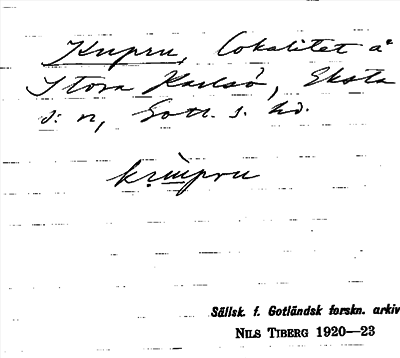 Kupru, lokalitet å
Stora Karlsö, Eksta
s:n, Gotl. s. hd.
Sällsk. f. Gotländsk forskn. arkiv
NILS TIBERG 1920—23